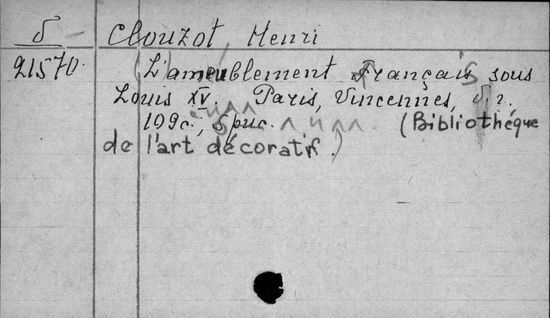 δ Clouzot, Henri
21570. L'ameublement français sous
Louis XV. Paris, Vincennes, s. d.
109c., рис. илл. (Bibliothéque
de l'art décoratif.)